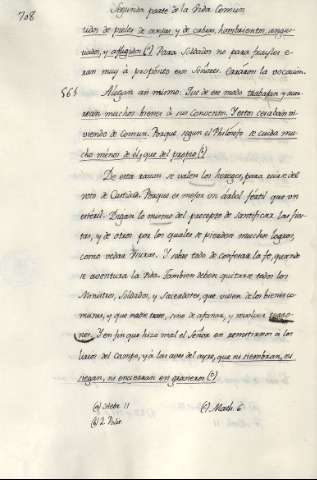 708
Segunda parte de la Vida Comun
tidos de pieles de ovejas, y de cabras, hambrientos, angus-
tiados, y afligidos (a) Para Soldados no para frayles e-
ran muy à proposito esos Señores. Erraron la vocacion.
565 Alegan asi mismo. Que de ese modo trabajan y aumen-
tarian muchos bienes à sus Conventos. Y estos serian vi-
viendo de Comun. Porque segun el Philosofo se cuida mu-
cho menos de él, que del propio (b)
De esta razon se valen los hereges, para huir del
voto de Castidad. Porque es mejor un arbol fertil que un
esteril. Digan lo mismo del precepto de santificar las fies-
tas, y de otros por los quales se pierden muchos logros,
como vedar Usuras. Y sobre todo de confesar la fe, quando
se aventura la Vida. Tambien deben quitarse todos los
Ministros, Soldados, y Sacerdotes, que viven de los bienes co-
munes, y que nadie trate, sino de afanar, y
Y en fin que hizo mal el Señor en remitirnos à los
lirios del Campo, y à las aves del ayre, que ni siembran, ni
siegan, ni encierran en graneros (c)
(a) Hebr. 11
(c) Math. 6
(b) 2 Polit.